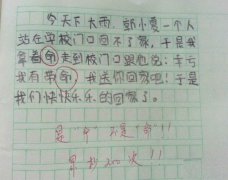 今天下大雨，郭小夏一个人
站在学校门口回不了家，于是我
拿着命走到校门口跟她说：幸亏
我有带命，我送你回家吧！于是
我们快快乐乐的回家了。
是“伞”不是“命”!!
罚抄200次!!